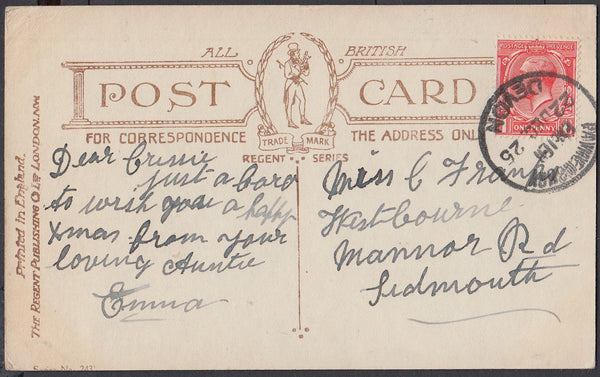 ALL BRITISH
POST CARD
TRADE MARK
FOR CORRESPONDENCE THE ADDRESS ONLY
REGENT SERIES
Dear Crissie
just a card
to wish you a happy
Xmas from your
loving Auntie
Emma
Miss C
Westbourne
Mannor Rd
Sidmouth
POSTAGE REVENUE
ONE PENNY
DEVON
25
Printed in England.
THE REGENT PUBLISHING Co LTD LONDON. NW